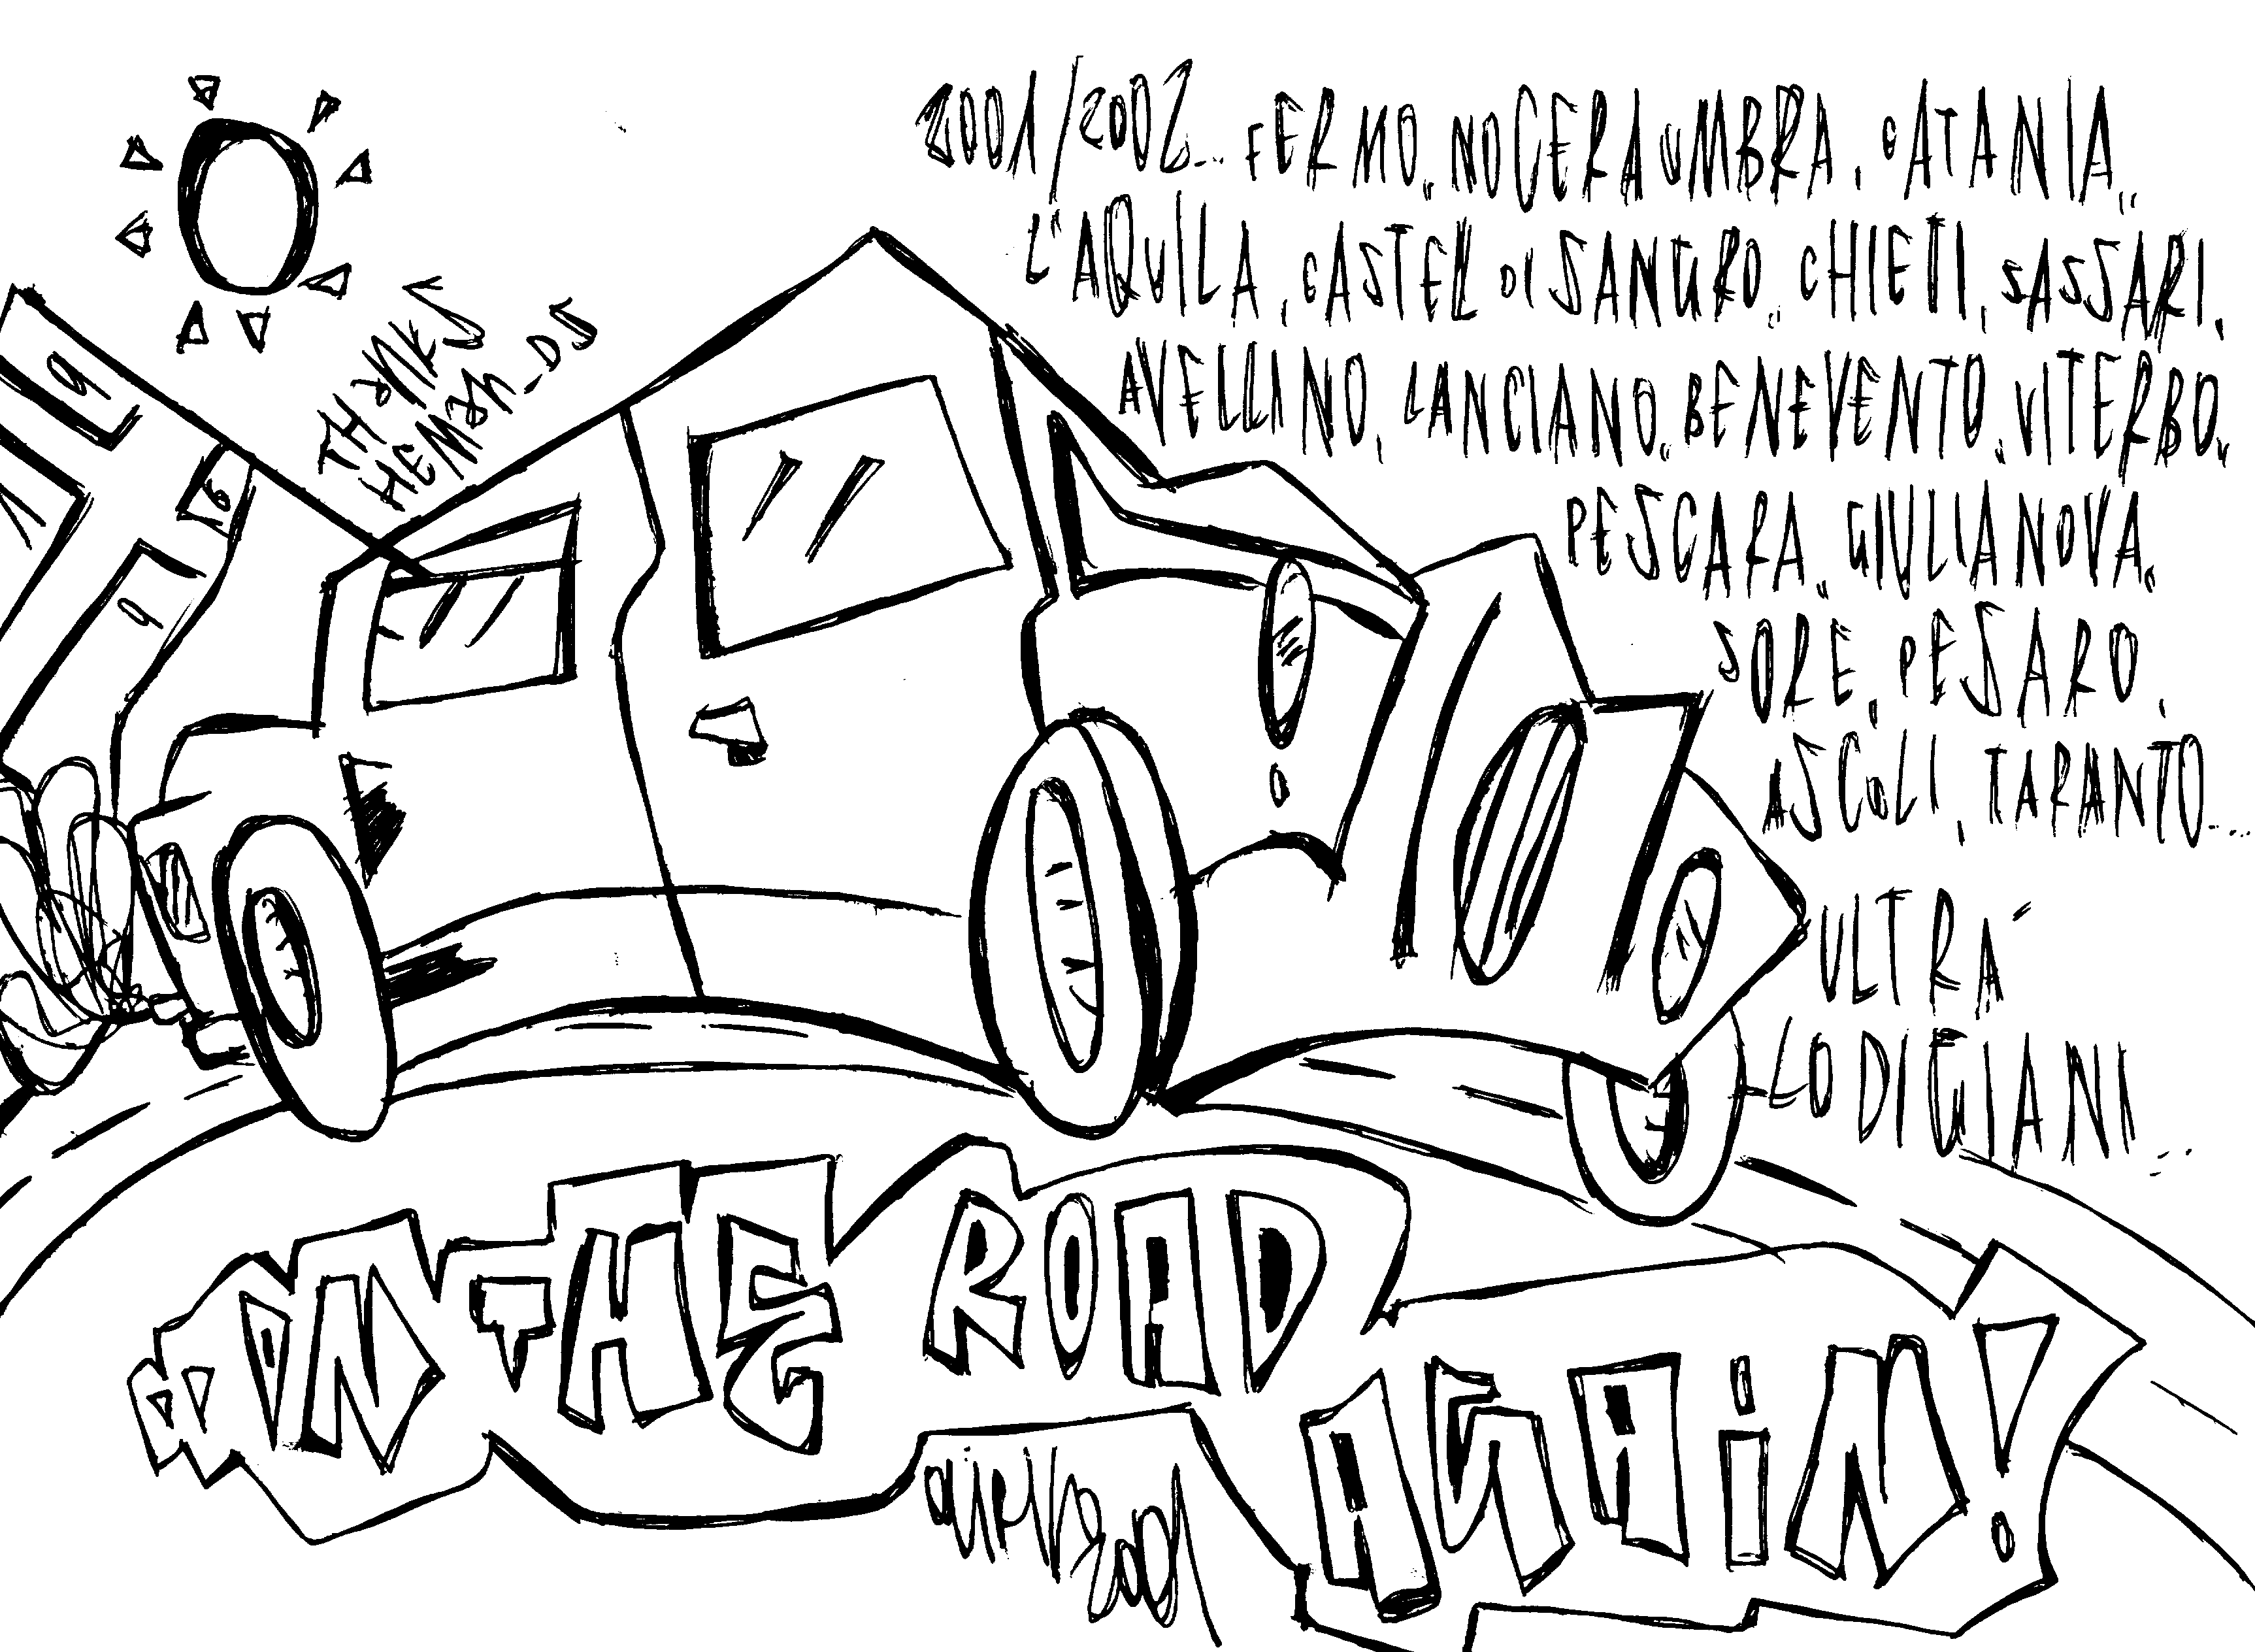 2001/2002... FERMO, NOCERA UMBRA, CATANIA,
L'AQUILA, CASTEL DI SANGRO, CHIETI, SASSARI,
AVELLINO, LANCIANO, BENEVENTO, VITERBO,
PESCARA, GIULIANOVA,
SORE, PESARO,
ASCOLI, TARANTO....
ULTRA'
LODIGIANI...
THANKS
HEMAN_DS
19
16
"ON THE ROAD
AGAIN!
2001